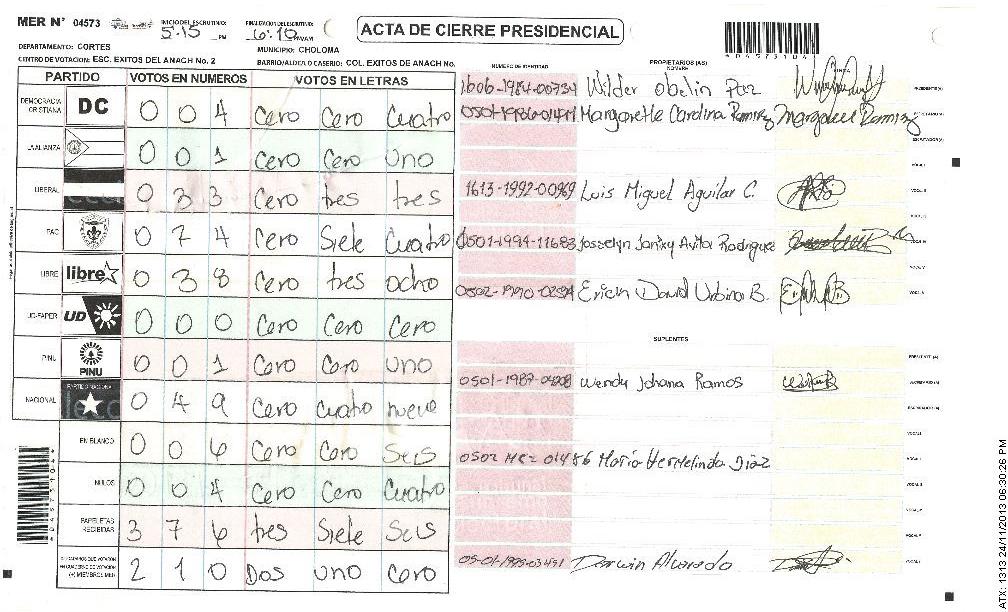 MER N° 04573
INICIO DEL ESCRUTINIO: 5:15 PM
FINALIZACION DEL ESCRUTINIO: 6:10 PM/AM
ACTA DE CIERRE PRESIDENCIAL
DEPARTAMENTO: CORTES
MUNICIPIO: CHOLOMA
CENTRO DE VOTACION: ESC. EXITOS DEL ANACH No. 2
BARRIO/ALDEA O CASERIO: COL. EXITOS DE ANACH No.
PARTIDO VOTOS EN NUMEROS VOTOS EN LETRAS
DEMOCRACIA CRISTIANA DC 0 0 4 Cero Cero Cuatro
LA ALIANZA 0 0 1 Cero Cero uno
LIBERAL 0 3 3 Cero tres tres
PAC 0 7 4 Cero Siete Cuatro
LIBRE libre 0 3 8 Cero tres ocho
UD-FAPER UD 0 0 0 Cero Cero Cero
PINU PINU 0 0 1 Cero Cero uno
NACIONAL PARTIDO NACIONAL 0 4 9 Cero cuatro nueve
EN BLANCO 0 0 6 Cero Cero Seis
NULOS 0 0 4 Cero Cero Cuatro
PAPELETAS RECIBIDAS 3 7 6 tres Siete Seis
CIUDADANOS QUE VOTARON
EN CUADERNO DE VOTACION
(+) MIEMBROS MER 2 1 0 Dos uno cero
NUMERO DE IDENTIDAD PROPIETARIOS (AS) NOMBRE FIRMA
1606-1984-00734 Wilder obelin Paz PRESIDENTE(A)
Margarette Carolina Ramirez SECRETARIO(A)
ESCRUTADOR(A)
VOCAL I
1613-1992-00969 Luis Miguel Aguilar C. VOCAL II
0501-1994-11683 Josselyn Janixy Avila Rodriguez
VOCAL V
Erick David Urbina B.
SUPLENTES
PRESIDENTE (A)
Wendy Johana Ramos SECRETARIO(A)
ESCRUTADOR(A)
VOCAL I
Maria Hermelinda Diaz
VOCAL V
Darwin Alvarado
ATX: 1313 24/11/2013 06:30:26 PM